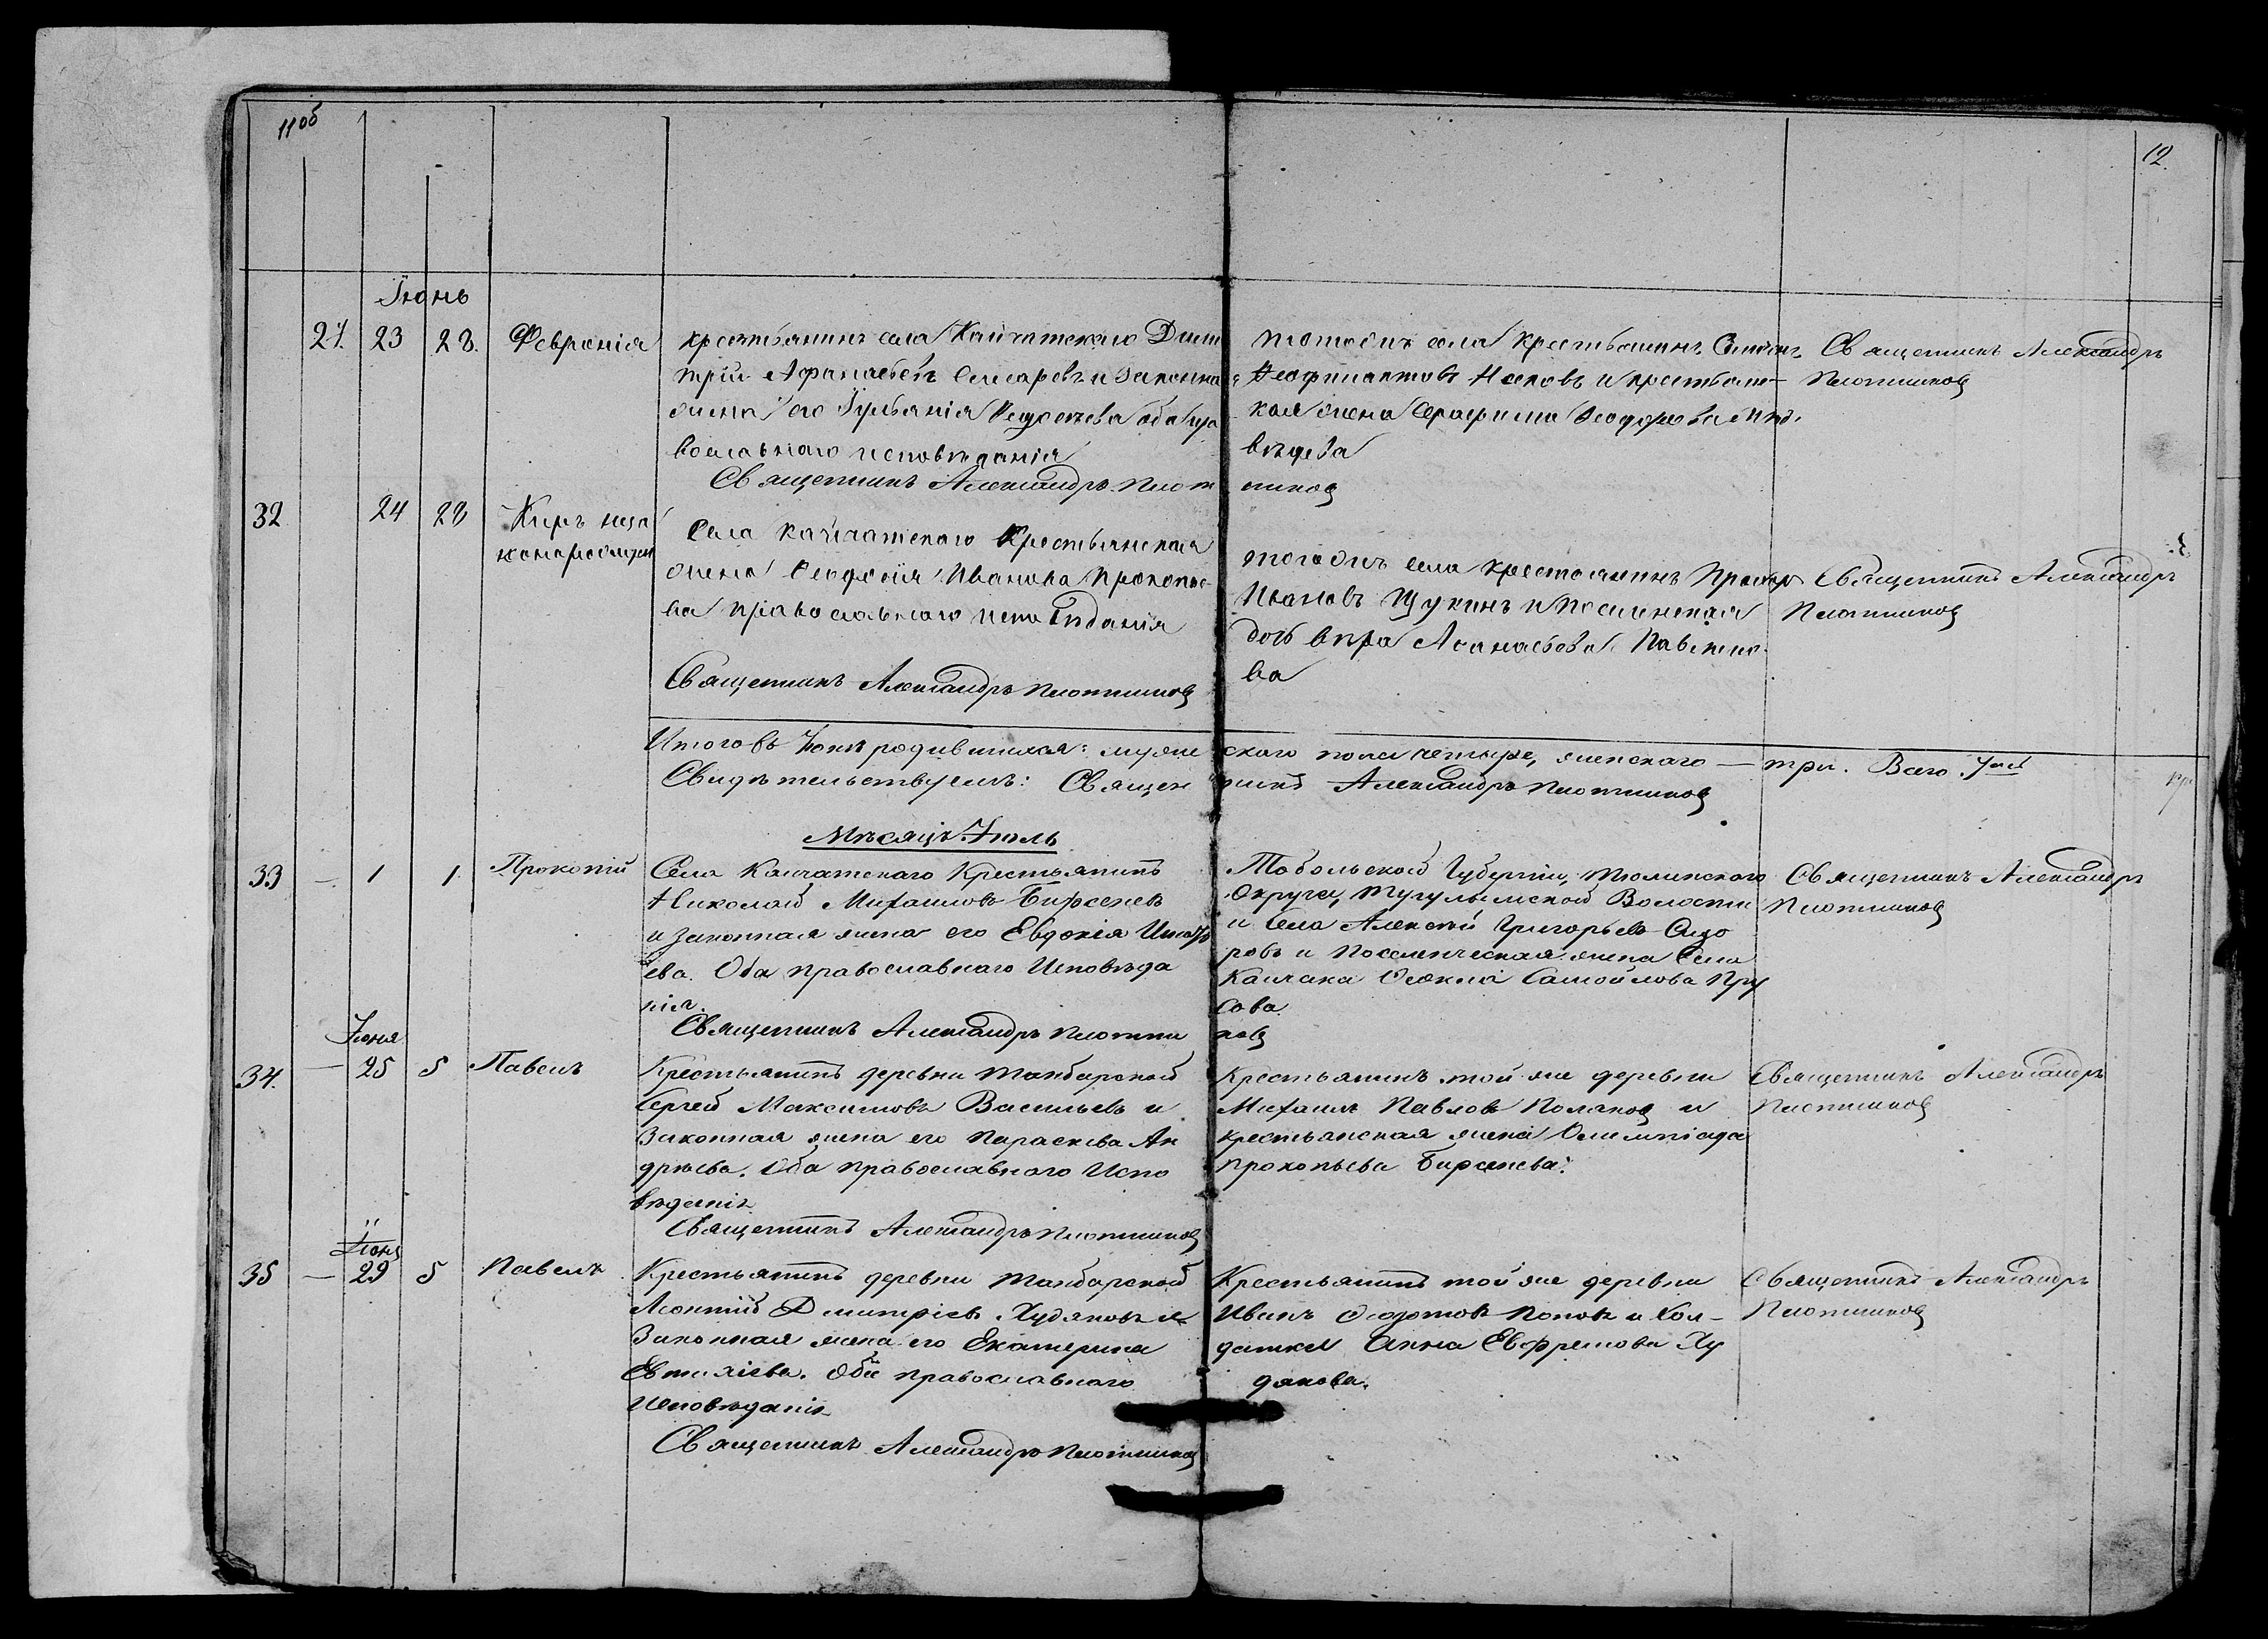 11 об
12.
Іюнь
21. 23 28. Февронія
крестьянинъ села Кайчатскаго Дим
трій Афанасьевъ Слесаревъ и законная
жена его Іульянія Федотьева оба пра
вославнаго исповѣданія
Священникъ Александръ Плот
тогожъ села Крестьянинъ
Феофилактовъ Носковъ и крестьянс-
кая жена Серафима Феодорова
вѣдева
никовъ
Священникъ Александръ
Плотниковъ
32 24 28 Киръ неза
коннорожден
Села Кайчатскаго Крестьянская
жена Феодосія Иванова Прокопье-
ва православнаго исповѣданія
Священникъ Александръ Плотниковъ
тогожъ села крестьянинъ Прохоръ
Ивановъ Щукинъ и
дочь Вѣра Афанасьева
ва
Священникъ Александръ
Плотниковъ
Итого въ Іюнѣ родившихся: мужескаго пола четыре, женскаго — три. Всего. 7мь
Свидѣтельствуемъ: Священникъ Александръ Плотниковъ
Мѣсяцъ Іюль
33 — 1 1 Прокопій
Села Кайчатскаго Крестьянинъ
Николай Михаиловъ Бирсеневъ
и законная жена его Евдокія Игнать
ева. Оба православнаго Исповѣда
нія.
Священникъ Александръ Плотни
Тобольской Губерніи, Тюминского
Округа, Тугулымской Волости
и Села Алексѣй Григорьевъ Сидо
ровъ и Поселенческая жена Села
Кайчака Фекла Самойлова Пру
сова
ковъ
Священникъ Александръ
Плотниковъ
Іюня
34. — 25 5 Павелъ
Крестьянинъ деревни Танбарской
Сергей Максимовъ Васильевъ и
Законная жена его Параскева Ан
дрѣева. Оба православнаго Испо
вѣданія
Священникъ Александръ Плотниковъ
Крестьянинъ той же деревни
Михаилъ Павловъ Поляковъ и
крестьянская жена Олимпіада
Прокопьева Бирсенева.
Священникъ Александръ
Плотниковъ
Іюня
35 — 29 5 Павелъ
Крестьянинъ деревни Танбарской
Леонтій Димитріевъ Худяковъ и
Законная жена его Екатерина
Евтихіева. Оба православнаго
Исповѣданія
Священникъ Александръ Плотниковъ
Крестьянинъ той же деревни
Иванъ Федотовъ Поповъ и Сол-
датка Анна Ефремова Ху
дякова.
Священникъ Александръ
Плотниковъ